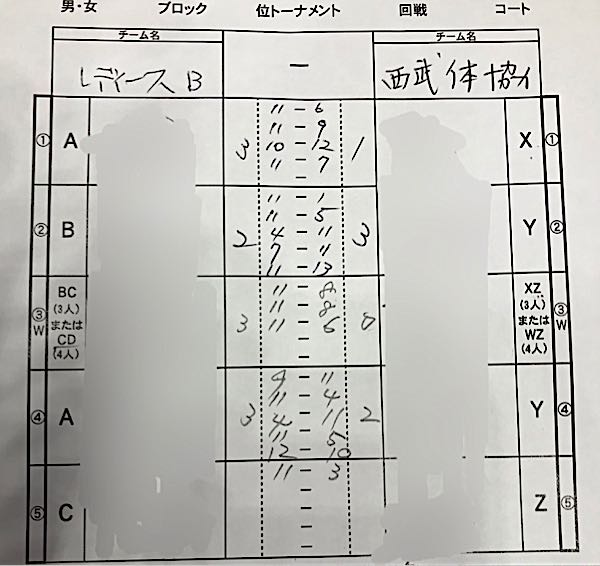 男・女 ブロック 位トーナメント 回戦 コート
チーム名 チーム名
レディース B — 西武体協イ
① A 3 1 X ①
11 — 6
11 — 9
10 — 12
11 — 7
—
② B 2 3 Y ②
11 — 1
11 — 5
4 — 11
7 — 11
11 — 13
③W BC (3人) または CD (4人) 3 0 XZ (3人) または WZ (4人) ③W
11 — 8
11 — 8
11 — 6
—
—
④ A 3 2 Y ④
9 — 11
11 — 4
4 — 11
11 — 5
12 — 10
⑤ C Z ⑤
11 — 3
—
—
—
—